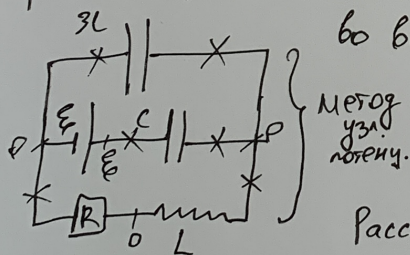 3C
во в
ℰ
ℰ
C
Метод
узл.
потенц.
R
0
L
Расс